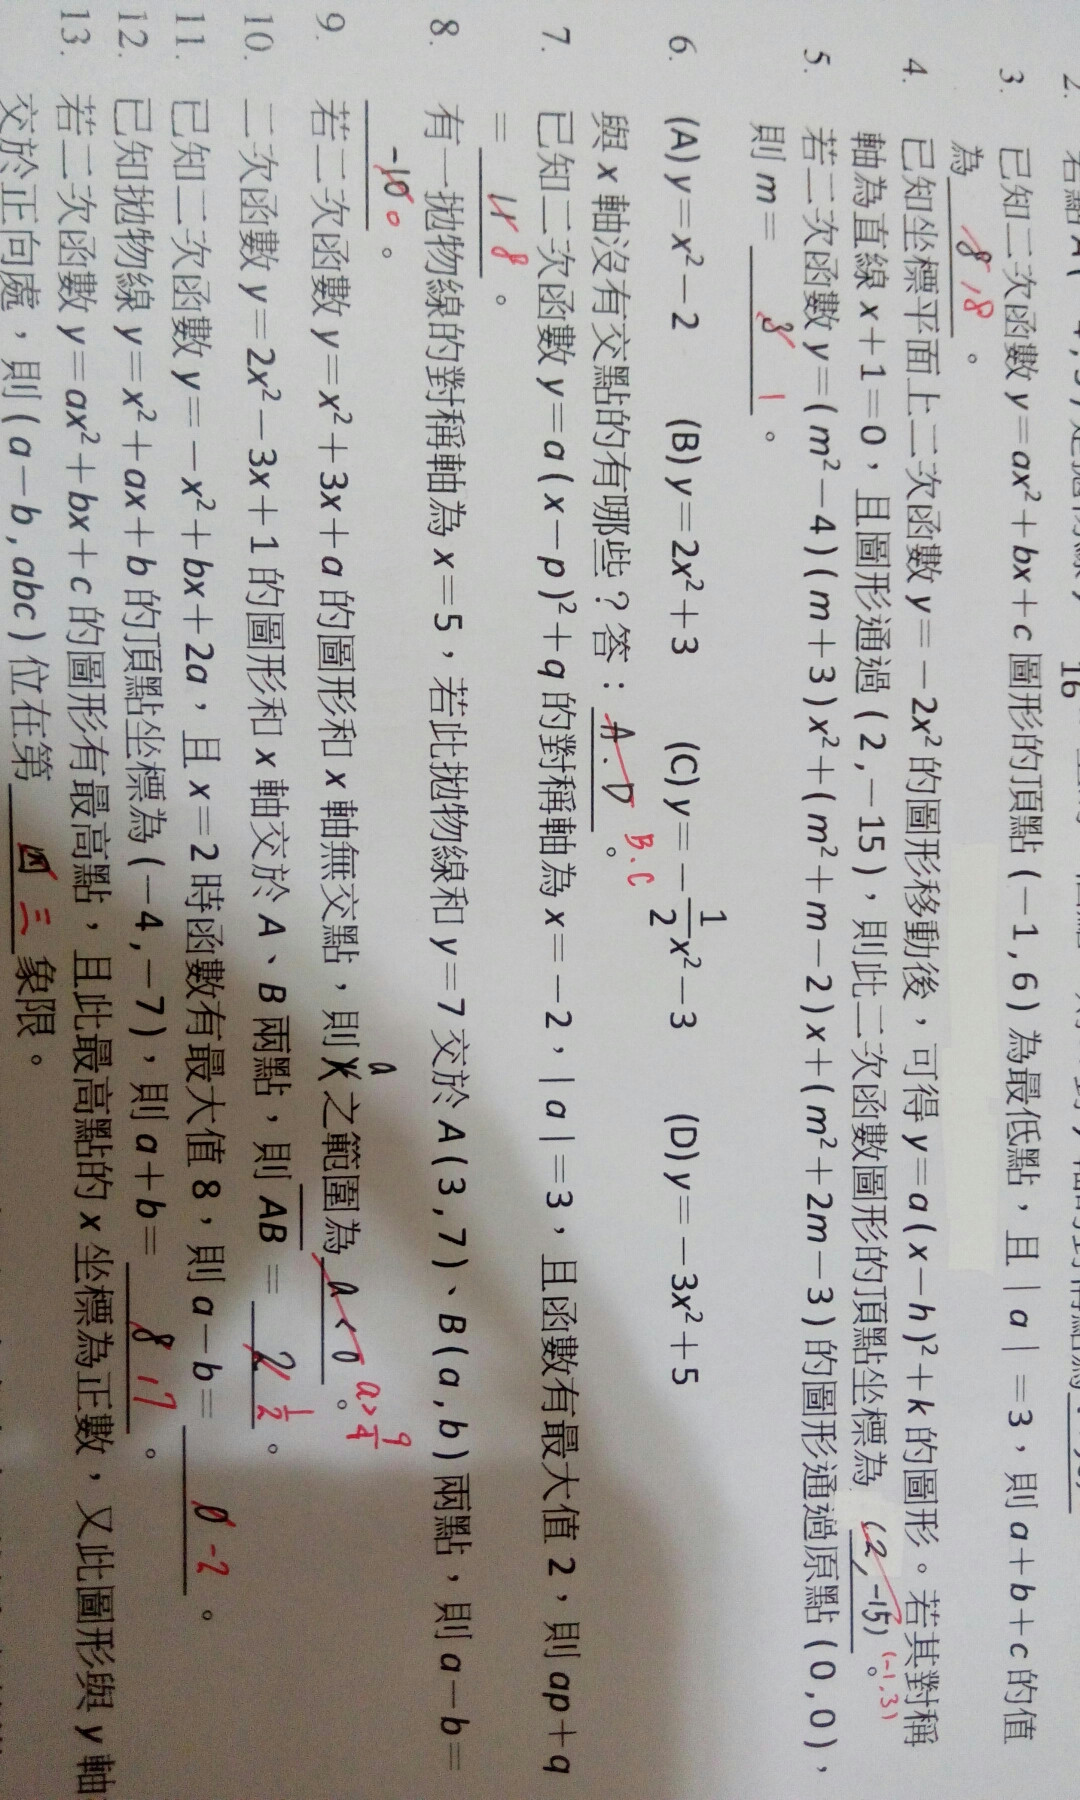 3. 已知二次函數 y=ax²+bx+c 圖形的頂點 (-1,6) 為最低點，且 |a|=3，則 a+b+c 的值
為 8 18 。
4. 已知坐標平面上二次函數 y=-2x² 的圖形移動後，可得 y=a(x-h)²+k 的圖形。若其對稱
軸為直線 x+1=0，且圖形通過 (2,-15)，則此二次函數圖形的頂點坐標為 (2,-15) (-1,3) 。
5. 若二次函數 y=(m²-4)(m+3)x²+(m²+m-2)x+(m²+2m-3) 的圖形通過原點 (0,0)，
則 m= 3 1 。
6. (A) y=x²-2 (B) y=2x²+3 (C) y=-1/2x²-3 (D) y=-3x²+5
與 x 軸沒有交點的有哪些？答：A.D B.C 。
7. 已知二次函數 y=a(x-p)²+q 的對稱軸為 x=-2，|a|=3，且函數有最大值 2，則 ap+q
= 8 。
8. 有一拋物線的對稱軸為 x=5，若此拋物線和 y=7 交於 A(3,7)、B(a,b) 兩點，則 a-b=
-10 0 。
9. 若二次函數 y=x²+3x+a 的圖形和 x 軸無交點，則 a 之範圍為 a<0 a>9/4 。
10. 二次函數 y=2x²-3x+1 的圖形和 x 軸交於 A、B 兩點，則 AB = 2 1/2 。
11. 已知二次函數 y=-x²+bx+2a，且 x=2 時函數有最大值 8，則 a-b= 0 -2 。
12. 已知拋物線 y=x²+ax+b 的頂點坐標為 (-4,-7)，則 a+b= 8 17 。
13. 若二次函數 y=ax²+bx+c 的圖形有最高點，且此最高點的 x 坐標為正數，又此圖形與 y 軸
交於正向處，則 (a-b,abc) 位在第 四 三 象限。